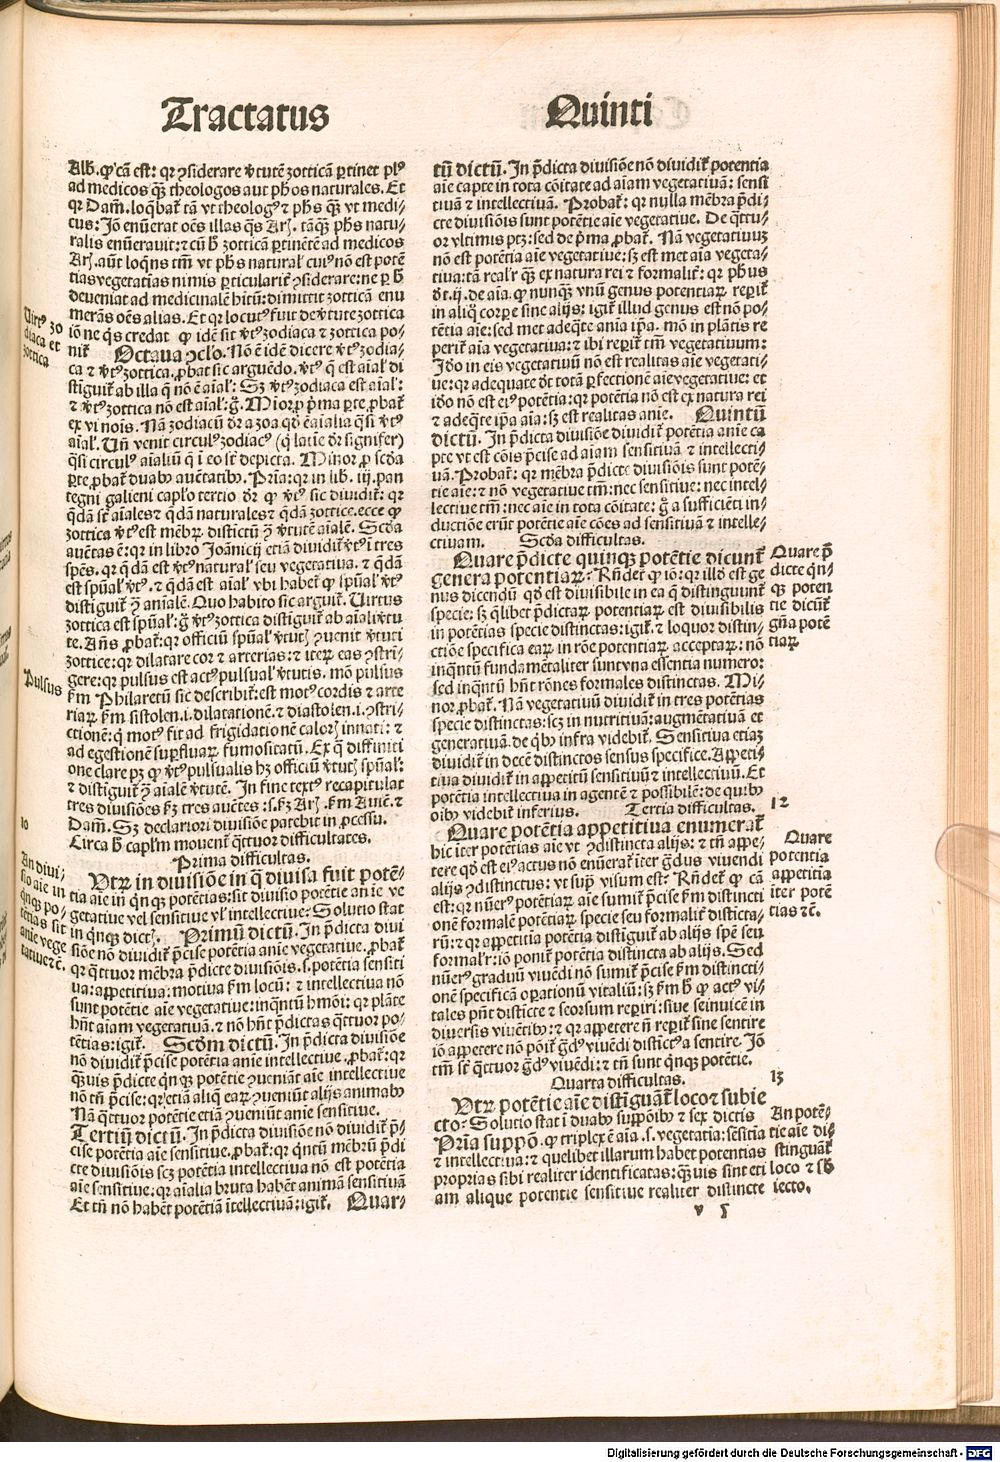 Tractatus Quinti
Alb. ꝙ cā est: qꝛ ꝯsiderare v̄tutē zotticā ꝑtinet plꝰ
ad medicos qȝ theologos aut ph̄os naturales. Et
qꝛ Dam̄. loq̄bat᷑ tā vt theologꝰ ⁊ ph̄s qȝ vt medi⸗
cus: Iō enūerat oēs illas q̄s Arꝭ. tāqȝ ph̄s natu⸗
ralis enūerauit: ⁊ cū h̄ zotticā ꝑtinētē ad medicos
Arꝭ. aūt loqn̄s tm̄ vt ph̄s natural᷑ cuiꝰ nō est potē
tias vegetatias nimis ꝑticularit᷑ ꝯsiderare: ne ꝑ h̄
deueniat ad medicinalē hitū: dimittit zotticā enu
merās oēs alias. Et qꝛ locutꝰ fuit de v̄tute zottica
iō ne q̄s credat ꝙ idē sit v̄tꝰ zodiaca ⁊ zottica po⸗
nit᷑ Octaua ꝯclo. Nō ē idē dicere v̄tꝰ zodia⸗
ca ⁊ v̄tꝰ zottica. ꝓbat sic arguēdo. v̄tꝰ q̄ est aial᷑ di
stiguit᷑ ab illa q̄ nō ē aial᷑: Sȝ v̄tꝰ zodiaca est aial᷑:
⁊ v̄tꝰ zottica nō est aial᷑: g̊. Mior ꝓ p̄ma ꝑte ꝓbat᷑
ex vi nois. Nā zodiacū dr̄ a zoa qd̄ ē aialia q̄si v̄tꝰ
aial᷑. Un̄ venit circulꝰ zodiacꝰ (q̄ latie dr̄ signifer)
q̄si circulꝰ aialiū q̄ i eo st̄ depicta. Minor ꝓ scd̄a
ꝑte ꝓbat᷑ duabꝰ auctatibꝰ. Pria: qꝛ in lib. iij. pan
tegni galieni caplo tertio dr̄ ꝙ v̄tꝰ sic diuidit᷑: qꝛ
q̄dā st̄ aiales ⁊ q̄dā naturales ⁊ q̄dā zottice. ecce ꝙ
zottica v̄tꝰ est mēbꝝ distictū ꝯ v̄tutē aialē. Scd̄a
auctas ē: qꝛ in libro Joānicij etiā diuidit᷑ v̄tꝰ ī tres
spēs. qꝛ q̄dā est v̄tꝰ natural᷑ seu vegetatiua. ⁊ q̄dā
est spūal᷑ v̄tꝰ. ⁊ q̄dā est aial᷑ vbi habet᷑ ꝙ spūal᷑ v̄tꝰ
distiguit᷑ ꝯ̄ aīalē. Quo habito sic arguit᷑. Uirtus
zottica est spūal᷑: g̊ v̄tꝰ zottica distiguit᷑ ab aiali v̄tu
te. Añs ꝓbat᷑: qꝛ officiū spūal᷑ v̄tutꝭ ꝯuenit v̄tuti
zottice: qꝛ dilatare cor ⁊ arterias: ⁊ iteꝝ eas ꝯstri⸗
gere: qꝛ pulsus est actꝰ pulsual᷑ v̄tutis. mō pulsus
ẜm Philaretū sic describit᷑: est motꝰ cordis ⁊ arte
riaꝝ ẜm sistolen. i. dilatationē. ⁊ diastolen. i. ꝯstri⸗
ctionē: q̄ motꝰ fit ad frigidationē calorꝭ innati: ⁊
ad egestionē suꝑfluaꝝ fumositatū. Ex q̄ diffiniti
one clare pȝ ꝙ v̄tꝰ pulsualis hȝ officiū v̄tutꝭ spūal᷑:
⁊ distiguit᷑ ꝯ aialē v̄tutē. In fine textꝰ recapitulat
tres diuisiōes ẜꝫ tres auctes: s. ẜꝫ Arꝭ. ẜm Auic̄. ⁊
Dam̄. Sȝ declariori diuisiōe patebit in ꝓcessu.
Circa h̄ caplm mouent᷑ q̄ttuor difficultates.
Prima difficultas.
Utꝝ in diuisiōe in q̄ diuisa fuit potē⸗
tia aie in q̄nqȝ potētias: sit diuisio potētie anie ve
getatiue vel sensitiue vl᷑ intellectiue: Solutio stat
in q̄nqȝ dictꝭ. Primū dictū. In p̄dicta diui
siōe nō diuidit᷑ p̄cise potētia anie vegetatiue. ꝓbat᷑
qꝛ q̄ttuor mēbra p̄dicte diuisiōis. s. potētia sensiti
ua: appetitiua: motiua ẜm locū: ⁊ intellectiua nō
sunt potētie aie vegetatiue: inqntū hmōi: qꝛ plāte
hñt aiam vegetatiuā. ⁊ nō hñt p̄dictas q̄ttuor po⸗
tētias: igit᷑. Scdm̄ dictū. In p̄dicta diuisiōe
nō diuidit᷑ p̄cise potētia anie intellectiue. ꝓbat᷑: qꝛ
qȝuis p̄dicte q̄nqȝ potētie ꝯueniāt aie intellectiue
nō tn̄ p̄cise: qꝛ etiā aliq̄ eaꝝ ꝯueniūt alijs animabꝰ
Nā q̄ttuor potētie etiā ꝯueniūt anie sensitiue.
Tertiū dictū. In p̄dicta diuisiōe nō diuidit᷑ p̄⸗
cise potētia aie sensitiue. ꝓbat᷑: qꝛ qntū mēbrū p̄di
cte diuisiōis scȝ potētia intellectiua nō est potētia
aie sensitiue: qꝛ aialia bruta habēt animā sensitiuā
Et tn̄ nō habēt potētiā ītellectiuā: igit᷑. Quar⸗
Uirtꝰ zo
diaca et
zottica
Pulsus
10
An diui⸗
sio aie in
q̄nqȝ po⸗
tētias sit
anie vege
tatiue ⁊c̄.
tū dictū. In p̄dicta diuisiōe nō diuidit᷑ potentia
aie capte in tota cōitate ad aiam vegetatiuā: sensi
tiuā ⁊ intellectiuā. Probat᷑: qꝛ nulla mēbra p̄di⸗
cte diuisiōis sunt potētie aie vegetatiue. De q̄ttu⸗
or vltimis ptȝ: sed de p̄ma ꝓbat᷑. Nā vegetatiuuȝ
nō est potētia aie vegetatiue: sȝ est met aia vegeta⸗
tiua: tā real᷑r qȝ ex natura rei ⁊ formalit᷑: qꝛ ph̄us
dt̄. ij. de aia. ꝙ nunqȝ vnū genus potentiaꝝ reperit᷑
in aliq̄ corpꝑe sine alijs: igit᷑ illud genus est nō po⸗
tētia aie: sed met adeq̄te ania ip̄a. mō in plātis re
perit᷑ aia vegetatiua: ⁊ ibi reperit᷑ tm̄ vegetatiuum:
Iō̄o in eis vegetatiuū nō est realitas aie vegetati⸗
ue: qꝛ adequate dt̄ totā ꝑfectionē aie vegetatiue: et
id̄o nō est eiꝰ potētia: qꝛ potētia nō est ex natura rei
⁊ adeq̄te ip̄a aia: sȝ est realitas anie. Quintū
dictū. In p̄dicta diuisiōe diuidit᷑ potētia anie ca
pte vt est cōis p̄cise ad aiam sensitiuā ⁊ intellecti⸗
uā. Probat᷑: qꝛ mēbra p̄dicte diuisiōis sunt potē⸗
tie aie: ⁊ nō vegetatiue tm̄: nec sensitiue: nec intel⸗
lectiue tm̄: nec aie in tota cōitate: g̊ a sufficiēti in⸗
ductiōe erūt potētie aie cōes ad sensitiuā ⁊ intelle⸗
ctiuam. Scd̄a difficultas.
Quare p̄dicte quinqȝ potētie dicunt᷑
genera potentiaꝝ: Rn̄det᷑ ꝙ iō: qꝛ illd̄ est ge
nus dicendū qd̄ est diuisibile in ea q̄ distinguunt᷑
specie: sȝ q̄libet p̄dictaꝝ potentiaꝝ est diuisibilis
in potētias specie distinctas: igit᷑. ⁊ loquor distin⸗
ctiōe specifica eaꝝ in rōe potentiaꝝ acceptaꝝ: nō
inqntū fundamētaliter sunt vna essentia numero:
sed inqntū hñt rōnes formales distinctas. Mi⸗
nor ꝓbat᷑. Nā vegetatiuū diuidit᷑ in tres potētias
specie distinctas: scȝ in nutritiuā: augmētatiuā et
generatiuā. de q̄bꝰ infra videbit᷑. Sensitiua etiaȝ
diuidit᷑ in decē distinctos sensus specifice. Appeti⸗
tiua diuidit᷑ in appetitū sensitiuū ⁊ intellectiuū. Et
potētia intellectiua in agentē ⁊ possibilē: de quibꝰ
oībꝰ videbit᷑ inferius. Tertia difficultas.
Quare potētia appetitiua enumerat᷑
hic īter potētias aie vt ꝯdistincta alijs: ⁊ tn̄ appe⸗
tere qd̄ est eiꝰ actus nō enūerat᷑ īter g̈dus viuendi
alijs ꝯdistinctus: vt supͣ visum est: Rn̄det᷑ ꝙ cā
est: qꝛ nūerꝰ potētiaꝝ aie sumit᷑ p̄cise ẜm distincti
onē formalē potētiaꝝ specie seu formalit᷑ disticta⸗
rū: ⁊ qꝛ appetitia potētia distiguit᷑ ab alijs spē seu
formal᷑r: iō ponit᷑ potētia distincta ab alijs. Sed
nūerꝰ graduū viuēdi nō sumit᷑ p̄cise ẜm distincti⸗
onē specificā oꝑationū vitaliū: sȝ ẜm h̄ ꝙ actꝰ vi⸗
tales pn̄t disticte ⁊ seorsum repiri: siue seinuicē in
diuersis viuētibꝰ: ⁊ qꝛ appetere n̄ reꝑit᷑ sine sentire
iō appetere nō pōit᷑ g̈dꝰ viuēdi distictꝰ a sentire. Iō
tm̄ st̄ q̄ttuor g̈dꝰ viuēdi: ⁊ tn̄ sunt q̄nqȝ potētie.
Quarta difficultas.
Utꝝ potētie aie distiguāt᷑ loco ⁊ subie
cto: Solutio stat ī duabꝰ suppōibꝰ ⁊ sex dictis
Pria suppō. ꝙ triplex ē aia. s. vegetatia: sēsitia
⁊ intellectiua: ⁊ quelibet illarum habet potentias
proprias sibi realiter identificatas: qȝuis sint eti
am alique potentie sensitiue realiter distincte
v ſ
Quare p̄
dicte q̄n⸗
qȝ poten
tie dicūt᷑
gn̄a potē
tiaꝝ.
12
Quare
potentia
appetitia
iter potē
tias ⁊c̄.
13
An potē⸗
tie aie di⸗
stinguāt᷑
loco ⁊ sb̄
iecto.
Digitalisierung gefördert durch die Deutsche Forschungsgemeinschaft - DFG